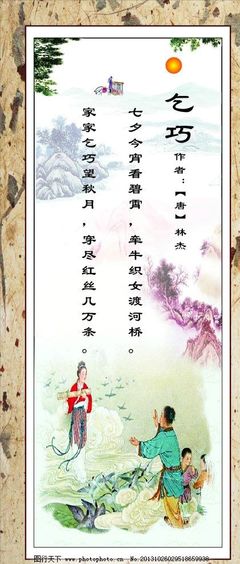 乞巧
作者：【唐】林杰
七夕今宵看碧霄，牵牛织女渡河桥。
家家乞巧望秋月，穿尽红丝几万条。
图行天下 www.photophoto.cn No.20131026029518659938